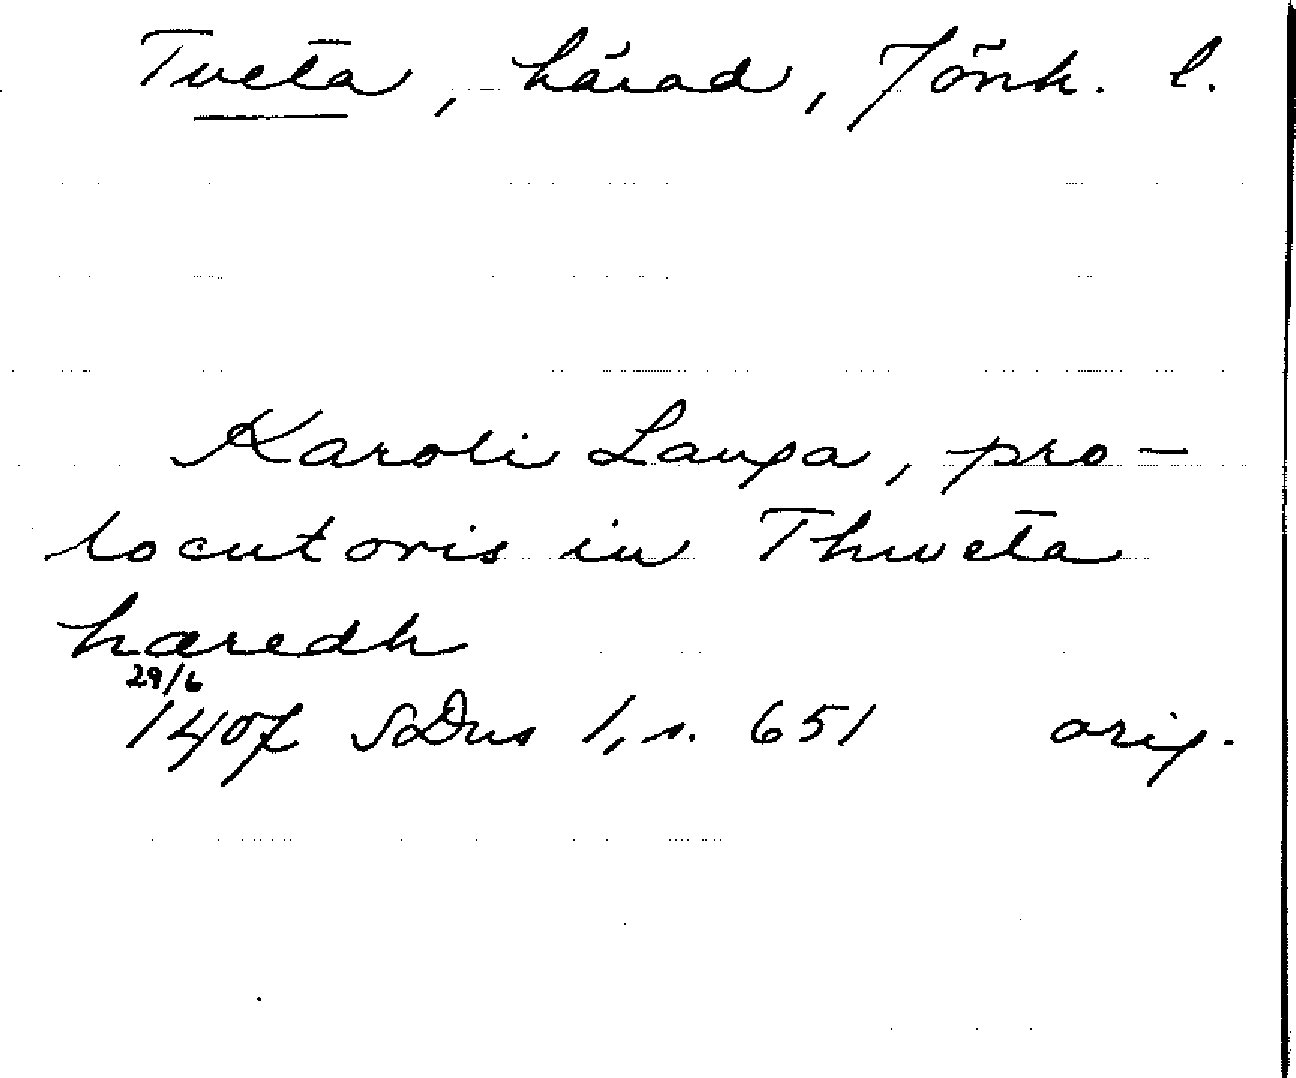 Tveta, härad, Jönk. l.
Karoli Langa, pro-
locutoris in Thweta
hæredh
29/6
1407 SvDns 1, s. 651 orig.